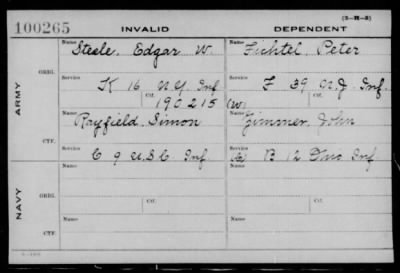 (3-H-3)
100265 INVALID DEPENDENT
Name Steele, Edgar W. Name Fichtel, Peter
ORIG.
Service K 16 N.Y. Inf Service F 39 N.J. Inf.
Ctf. 190215 Ctf. (W)
ARMY
Name Rayfield, Simon Name Zimmer, John
CTF.
Service C 9 U.S.C Inf. Service B 12 Inf.
NAVY
Name Name
ORIG.
Ctf. Ctf.
Name Name
CTF.